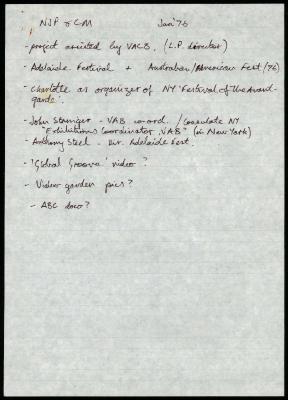 NJP & CM Jan '76
- project assisted by VACB. (L.P. director)
- Adelaide Festival + Australian/American Fest /76
- Charlotte as organizer of NY 'Festival of the Avant-
garde'.
- John Stringer - VAB co-ord. / Consulate NY
"Exhibitions Coordinator VAB" (in New York)
- Anthony Steel - Dir. Adelaide Fest.
- 'Global Groove' video ?
- Video garden pics ?
- ABC doco ?